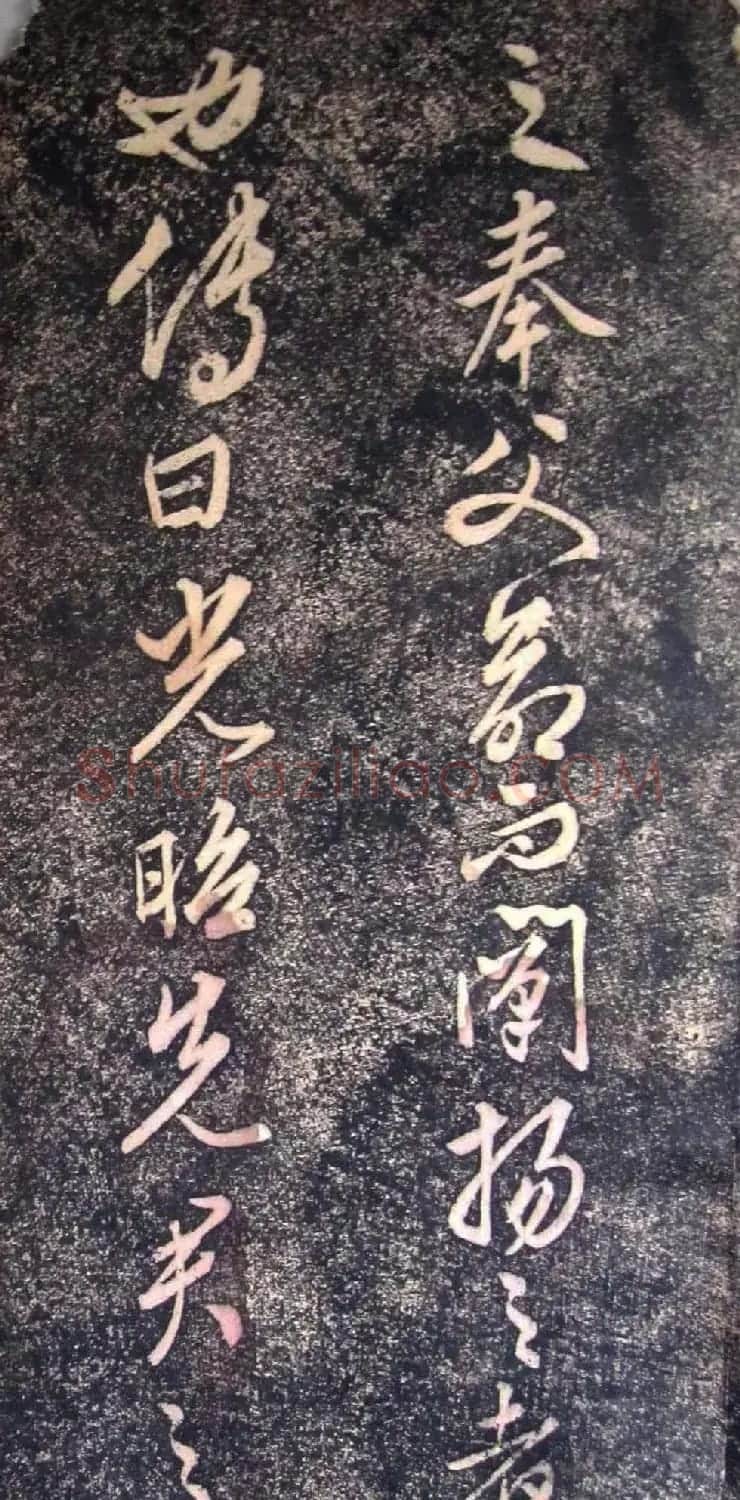 之奉父命而闡揚之者
也傳曰光昭先君之
Shufaziliao.COM